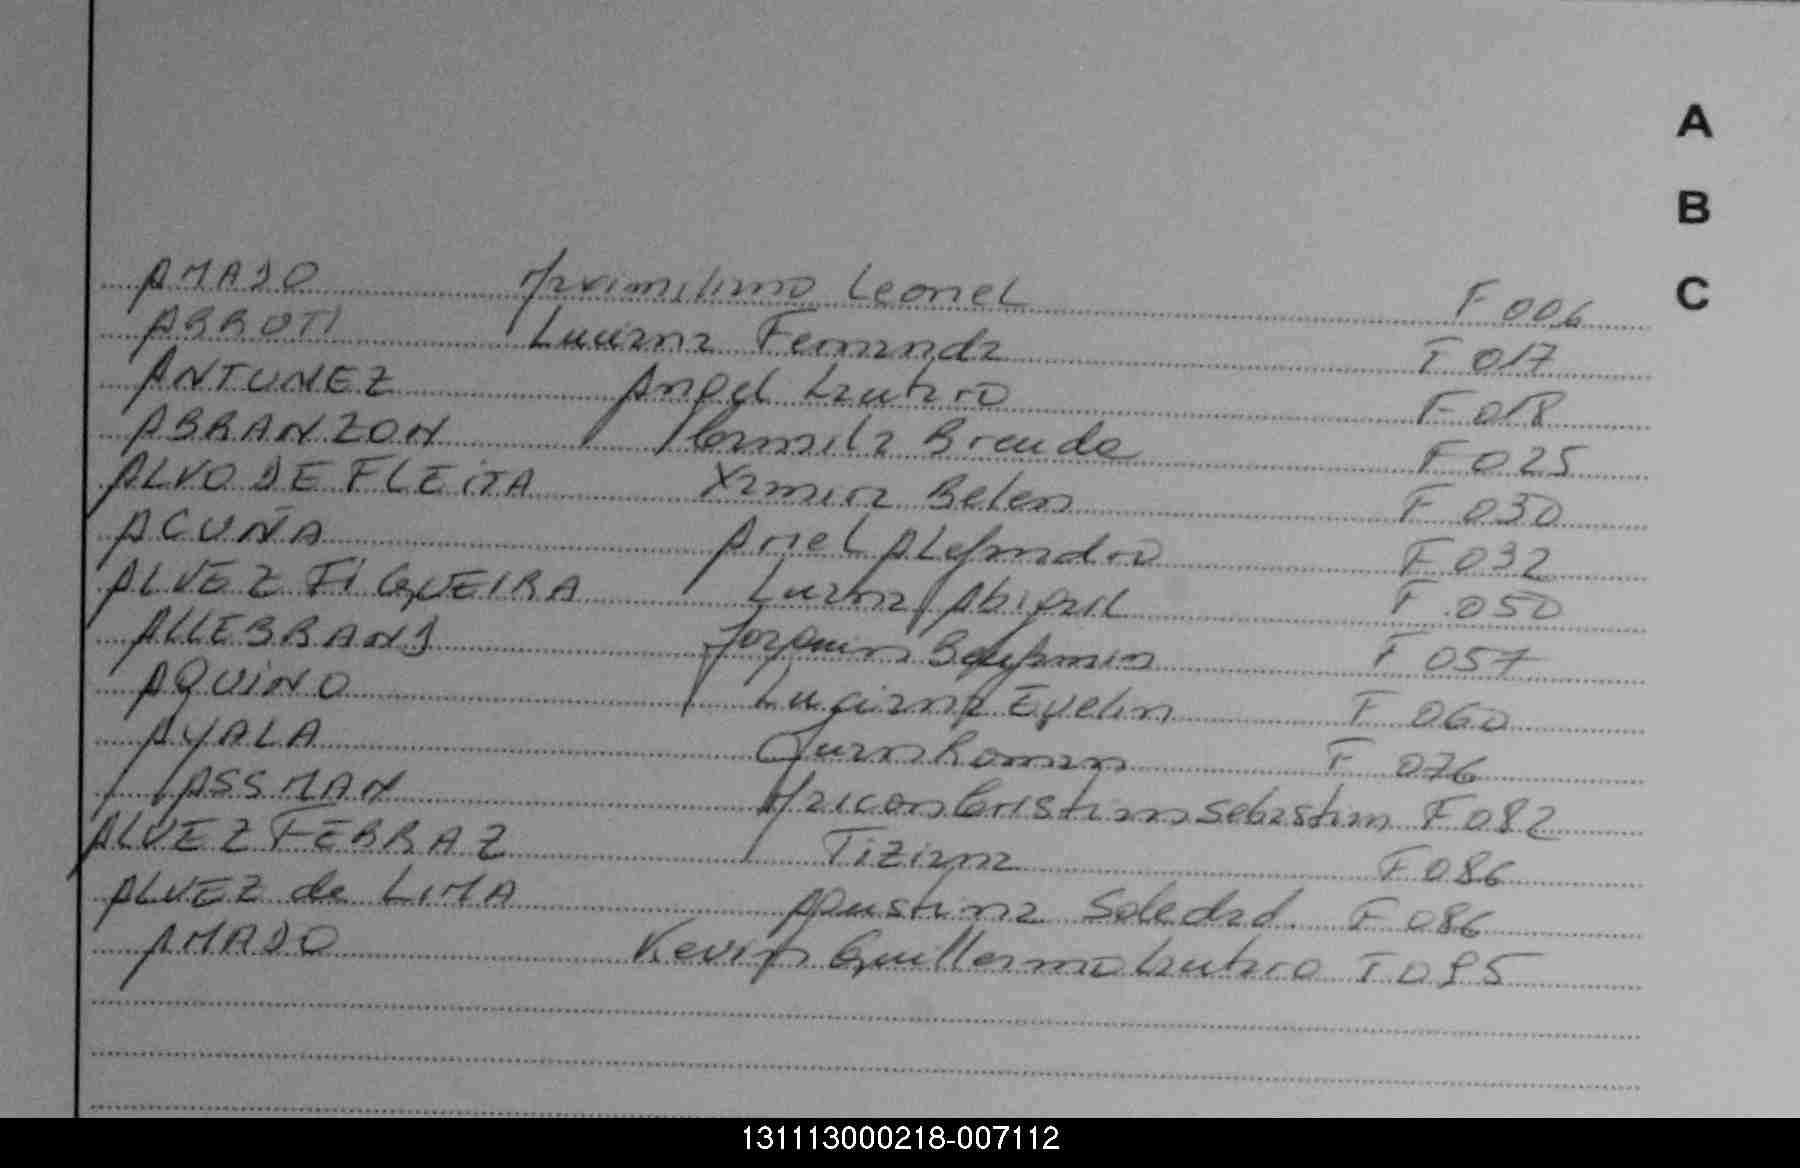 A
B
C
AMADO Maximiliano Leonel F 006
ABROTI Luciana Fernanda F 017
ANTUNEZ Angel Lautaro F 018
ABRANZON Camila Brenda F 025
ALVO DE FLEiTA Xamira Belen F 030
ACUÑA Ariel ALejandro F 032
ALVEZ FIGUEIRA Luana Abigail F 050
ALLEBRAND Joaquin Benjamin F 057
AQUiNO Luciana Evelin F 060
AYALA Juan Roman F 076
ASSMAN Maicon Cristian Sebastian F 082
ALVEZ FERRAZ Tiziana F 086
ALVEZ de LIMA Agustina Soledad F 086
AMADO Kevin Guillermo Lautaro F 095
131113000218-007112